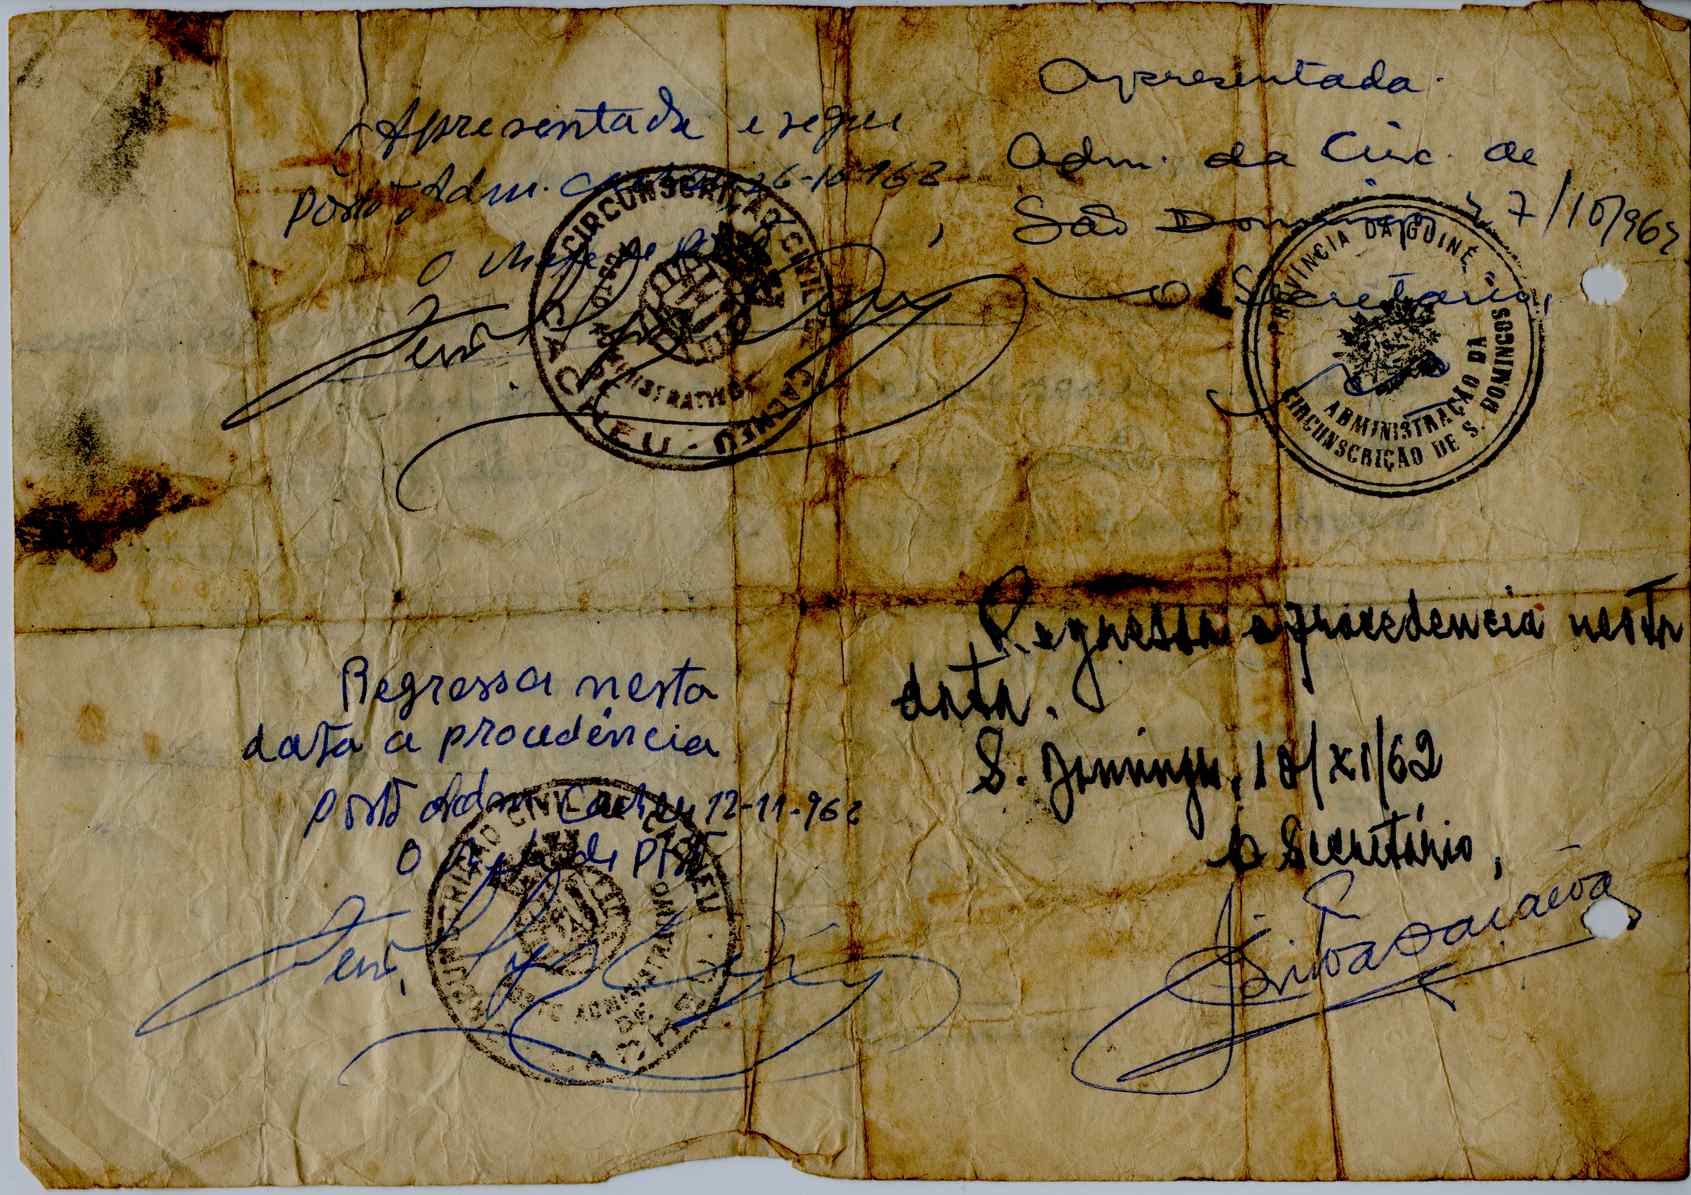 Apresentada e segue
Posto Adm. Cacheu, 26-10-962
O Chefe de Posto
CIRCUNSCRIÇÃO CIVIL DE CACHEU
POSTO ADMINISTRATIVO DE
CACHEU
Apresentada.
Adm. da Circ. de
São Domingos, 27/10/962
O Secretário,
PROVINCIA DA GUINÉ
ADMINISTRAÇÃO DA
CIRCUNSCRIÇÃO DE S. DOMINGOS
Regressa nesta
data a procedência
Posto Adm. Cacheu 12-11-962
O Chefe de Posto
CIVIL DE CACHEU
POSTO ADMINISTRATIVO
Regressa a procedencia nesta
data.
S. Domingos, 10/XI/62
O Secretário,